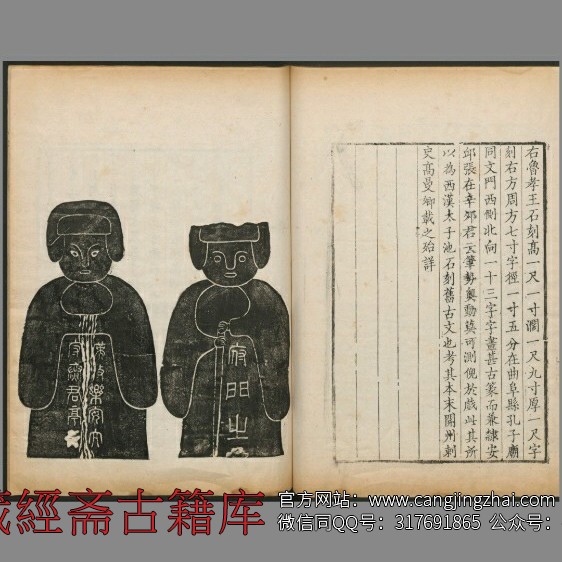 右魯孝王石刻高一尺一寸濶一尺九寸厚一尺字
刻右方周方七寸字徑一寸五分在曲阜縣孔子廟
同文門西側北向一十三字字畫甚古篆而兼隸安
邱張在辛郊君云筆勢奧動莫可測倪於戲此其所
以為西漢太子池石刻舊古文也考其本末開州刺
史高曼卿載之殆詳
府門之
漢故樂安太
守麃君亭
藏經斋古籍库
官方网站：www.cangjingzhai.com
微信同QQ号：317691865 公众号：